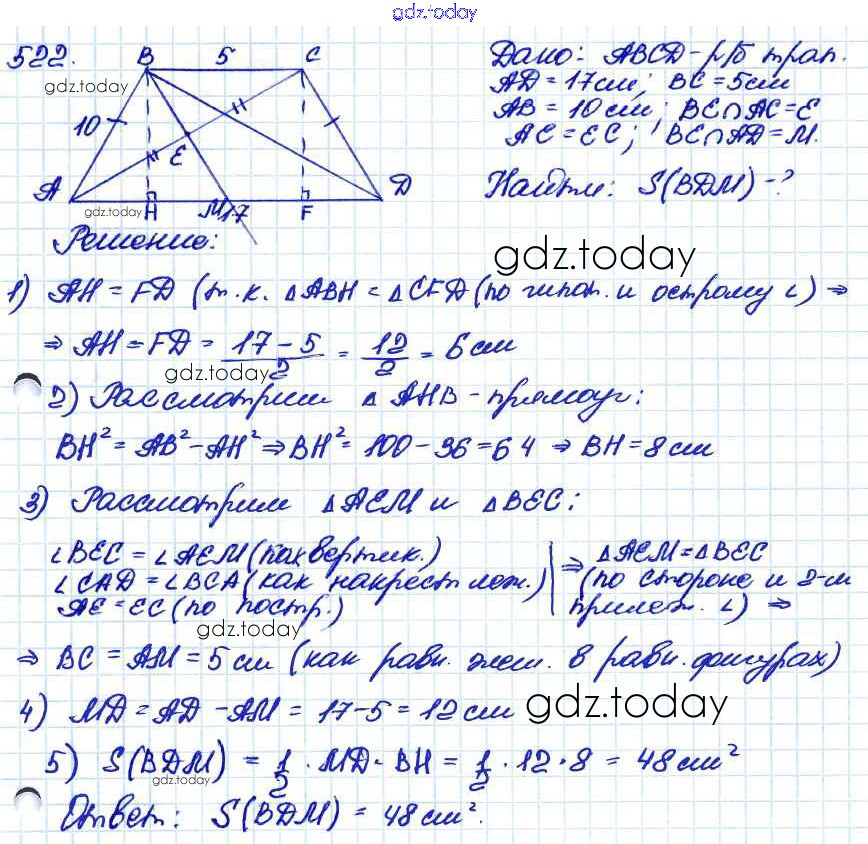 gdz.today
522. B 5 C
Дано: ABCD - р/б трап.
gdz.today
AD = 17 см; BC = 5 см
10
AB = 10 см; BE∩AC = E
E
AC = EC; BE∩AD = M.
A H M 17 F D
Найти: S(BDM) - ?
gdz.today
Решение:
gdz.today
1) AH = FD (т.к. △ABH = △CFD (по гипот. и острому ∠) ⇒
⇒ AH = FD = 17 - 5 / 2 = 12 / 2 = 6 см
gdz.today
2) Рассмотрим △ AHB - прямоуг:
BH² = AB² - AH² ⇒ BH² = 100 - 36 = 64 ⇒ BH = 8 см
3) Рассмотрим △AEM и △BEC:
∠BEC = ∠AEM (как вертик.)
∠CAD = ∠BCA (как накрест леж.)
AE = EC (по постр.)
⇒ △AEM = △BEC
(по стороне и 2-м
прилеж. ∠) ⇒
gdz.today
⇒ BC = AM = 5 см (как равн. элем. в равн. фигурах)
4) MD = AD - AM = 17 - 5 = 12 см
gdz.today
5) S(BDM) = 1/2 · MD · BH = 1/2 · 12 · 8 = 48 см²
gdz.today
Ответ: S(BDM) = 48 см².